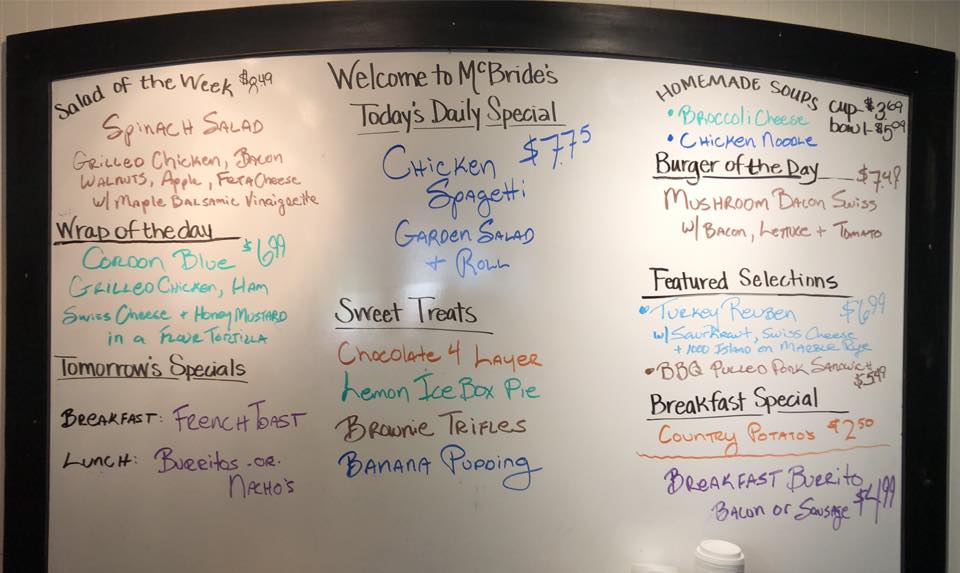 Salad of the Week $8.49
Spinach Salad
Grilled Chicken, Bacon
Walnuts, Apple, Feta Cheese
w/ Maple Balsamic Vinaiguette
Wrap of the day
Cordon Blue $6.99
Grilled Chicken, Ham
Swiss Cheese + Honey Mustard
in a Flour Tortilla
Tomorrow's Specials
Breakfast: French Toast
Lunch: Burritos or
Nacho's
Welcome to McBride's
Today's Daily Special
Chicken $7.75
Spagetti
Garden Salad
+ Roll
Sweet Treats
Chocolate 4 Layer
Lemon Ice Box Pie
Brownie Trifles
Banana Pudding
Homemade Soups cup - $3.69
• Broccoli Cheese bowl - $5.09
• Chicken Noodle
Burger of the Day $7.48
Mushroom Bacon Swiss
w/ Bacon, Lettuce + Tomato
Featured Selections
• Turkey Reuben $6.99
w/ Saurkraut, Swiss Cheese
+ 1000 Island on Marble Rye
• BBQ Pulled Pork Sandwich
$5.49
Breakfast Special
Country Potato's $2.50
Breakfast Burrito
Bacon or Sausage $4.99